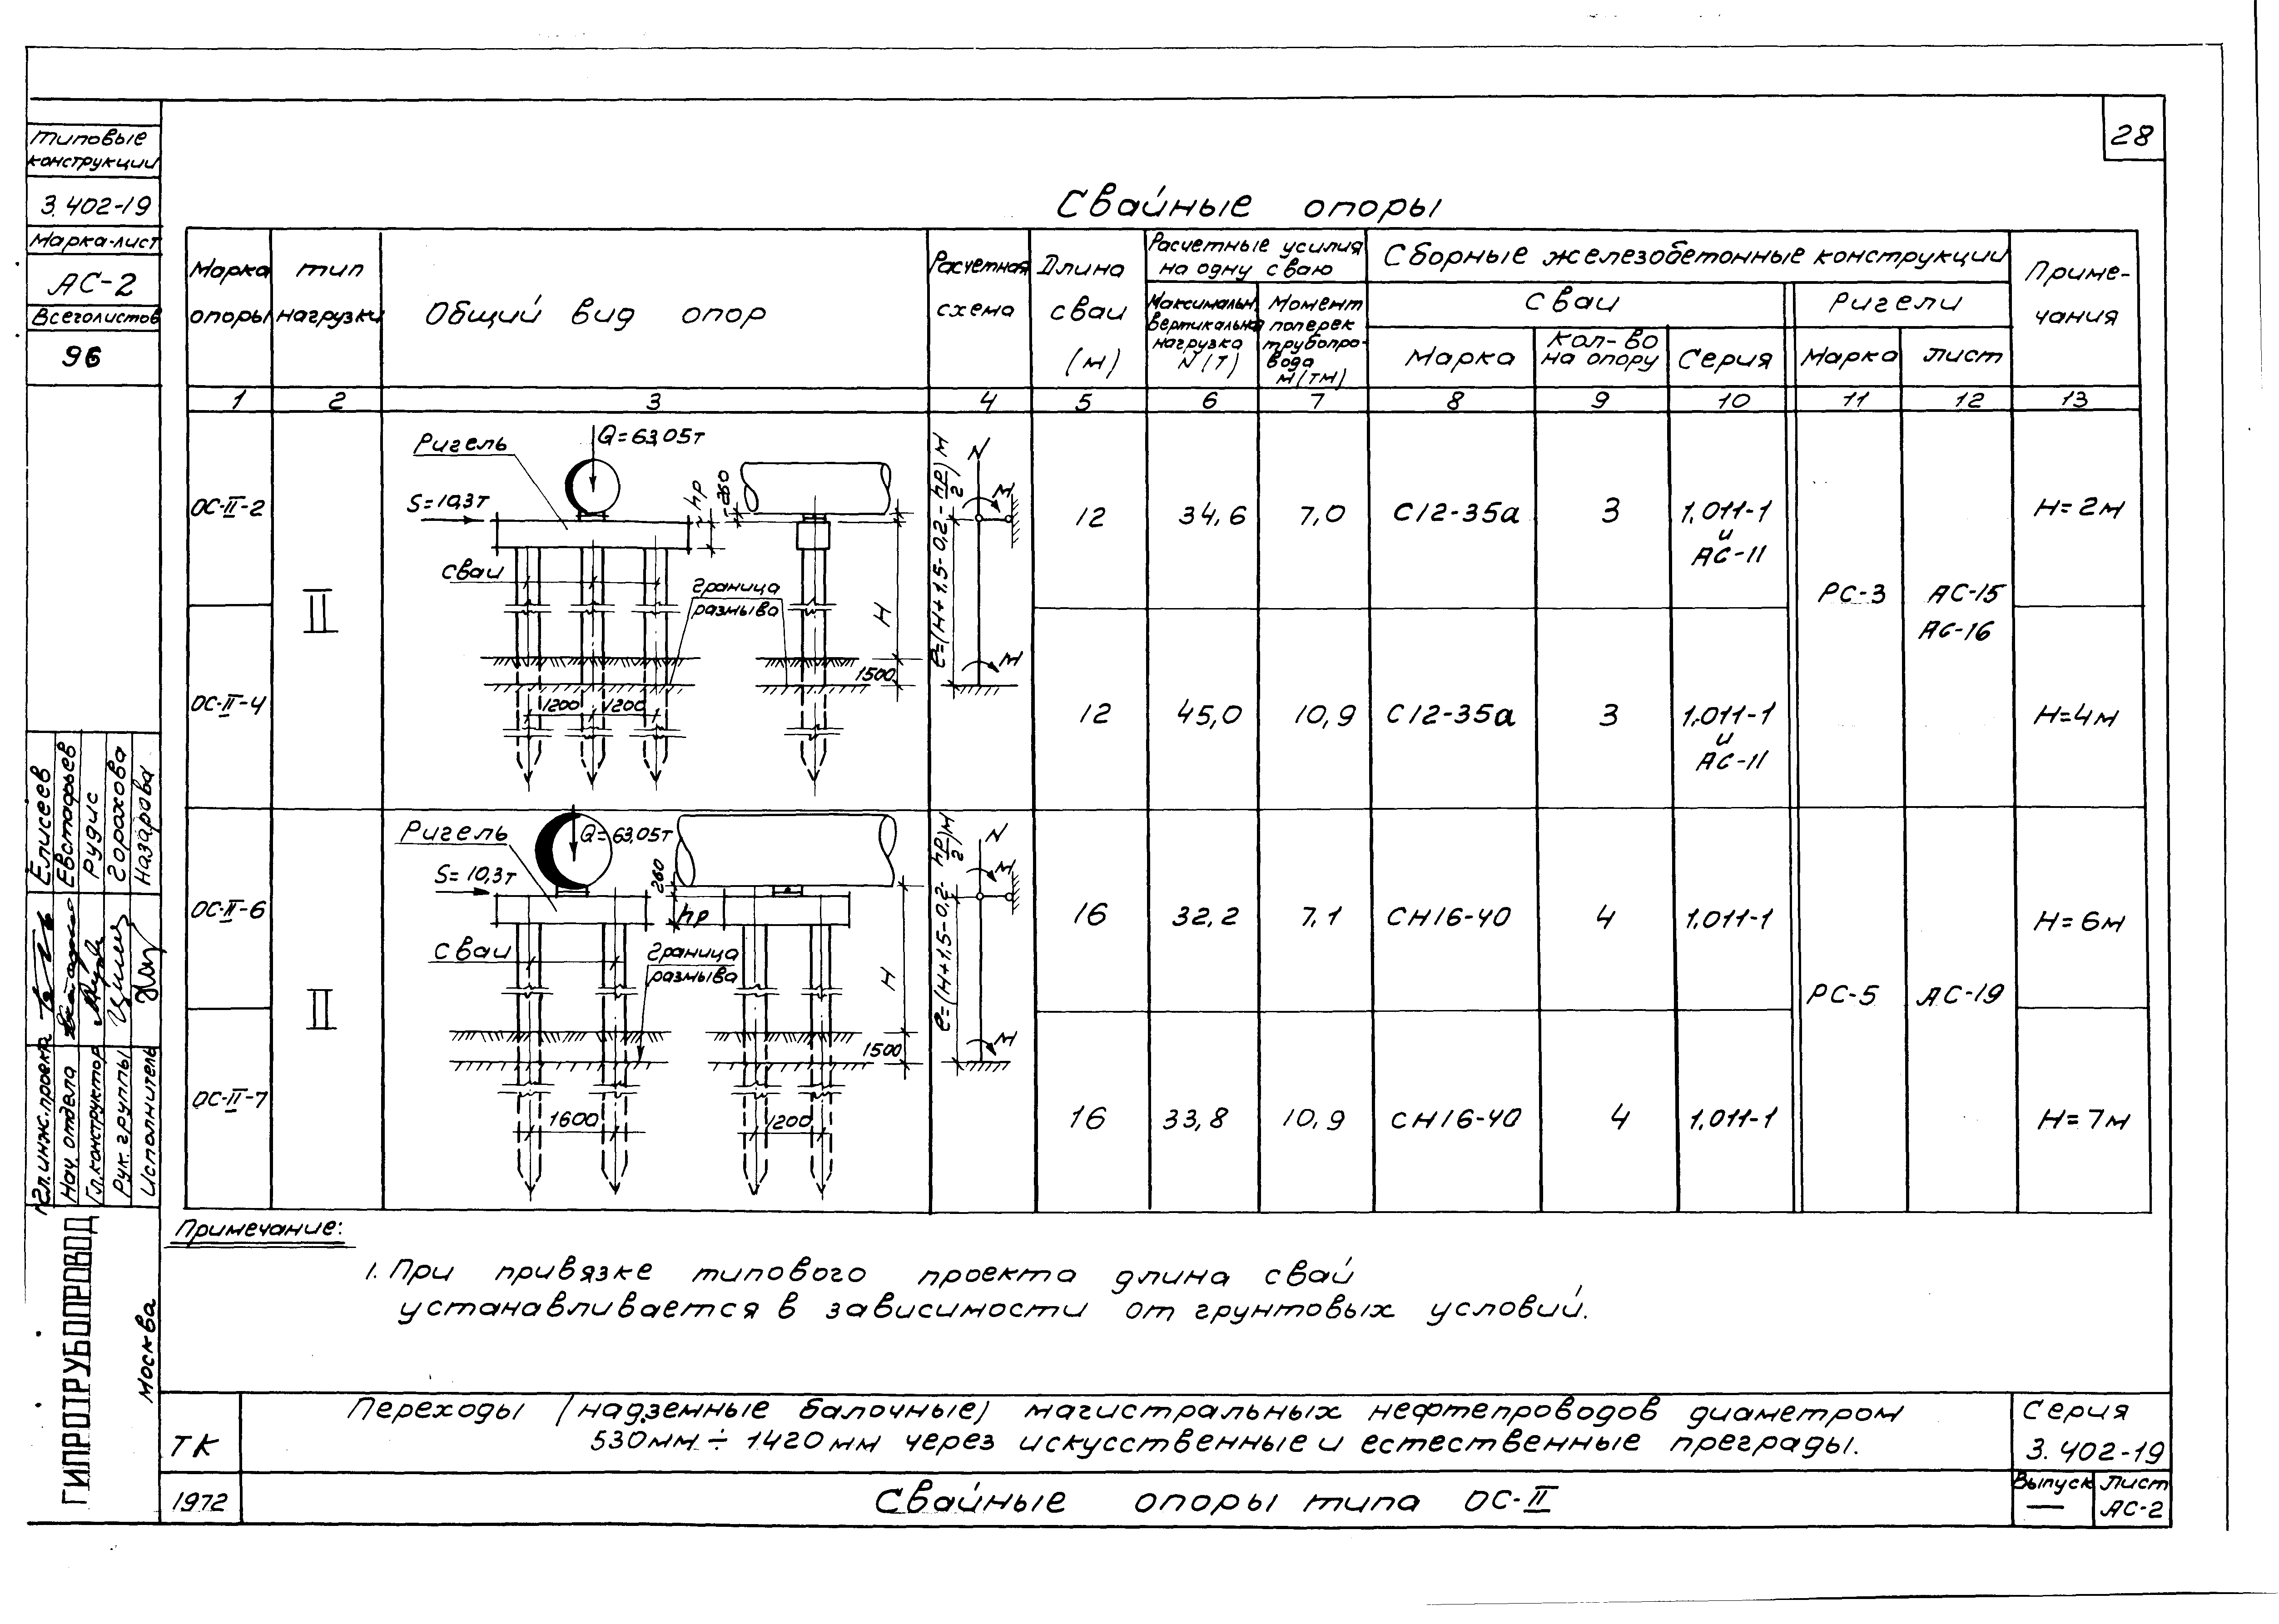 28
Типовые
конструкции
3.402-19
Марка-лист
АС-2
Всего листов
96
Свайные опоры
Марка
опоры
тип
нагрузки
Общий вид опор
Расчетная
схема
Длина
сваи
(м)
Расчетные усилия
на одну сваю
Максимальн.
вертикальная
нагрузка
N(т)
Момент
поперек
трубопро-
вода
М(тм)
Сборные железобетонные конструкции
Сваи
Марка
Кол-во
на опору
Серия
Ригели
Марка
Лист
Приме-
чания
1 2 3 4 5 6 7 8 9 10 11 12 13
ОС-II-2
ОС-II-4
II
Ригель
Q=63,05т
S=10,3т
hр
260
сваи
граница
размыва
Н
1500
1200 1200
ℓ=(Н+1,5-0,2-hр/2)м
N
М
М
12 34,6 7,0 С12-35а 3 1.011-1
и
АС-11
Н=2м
РС-3 АС-15
АС-16
12 45,0 10,9 С12-35а 3 1.011-1
и
АС-11
Н=4м
ОС-II-6
ОС-II-7
II
Ригель
Q=63,05т
S=10,3т
260
hр
сваи
Граница
размыва
Н
1500
1600
1200
ℓ=(Н+1,5-0,2-hр/2)м
N
М
М
16 32,2 7,1 СН16-40 4 1.011-1 Н=6м
РС-5 АС-19
16 33,8 10,9 СН16-40 4 1.011-1 Н=7м
Примечание:
1. При привязке типового проекта длина свай
устанавливается в зависимости от грунтовых условий.
Гл.инж.проекта Елисеев
Нач. отдела Евстафьев
Гл.конструктор Рудис
Рук. группы Горохова
Исполнитель Назарова
ГИПРОТРУБОПРОВОД
Москва
ТК
1972
Переходы (надземные балочные) магистральных нефтепроводов диаметром
530мм÷1420мм через искусственные и естественные преграды.
Свайные опоры типа ОС-II
Серия
3.402-19
Выпуск
—
Лист
АС-2